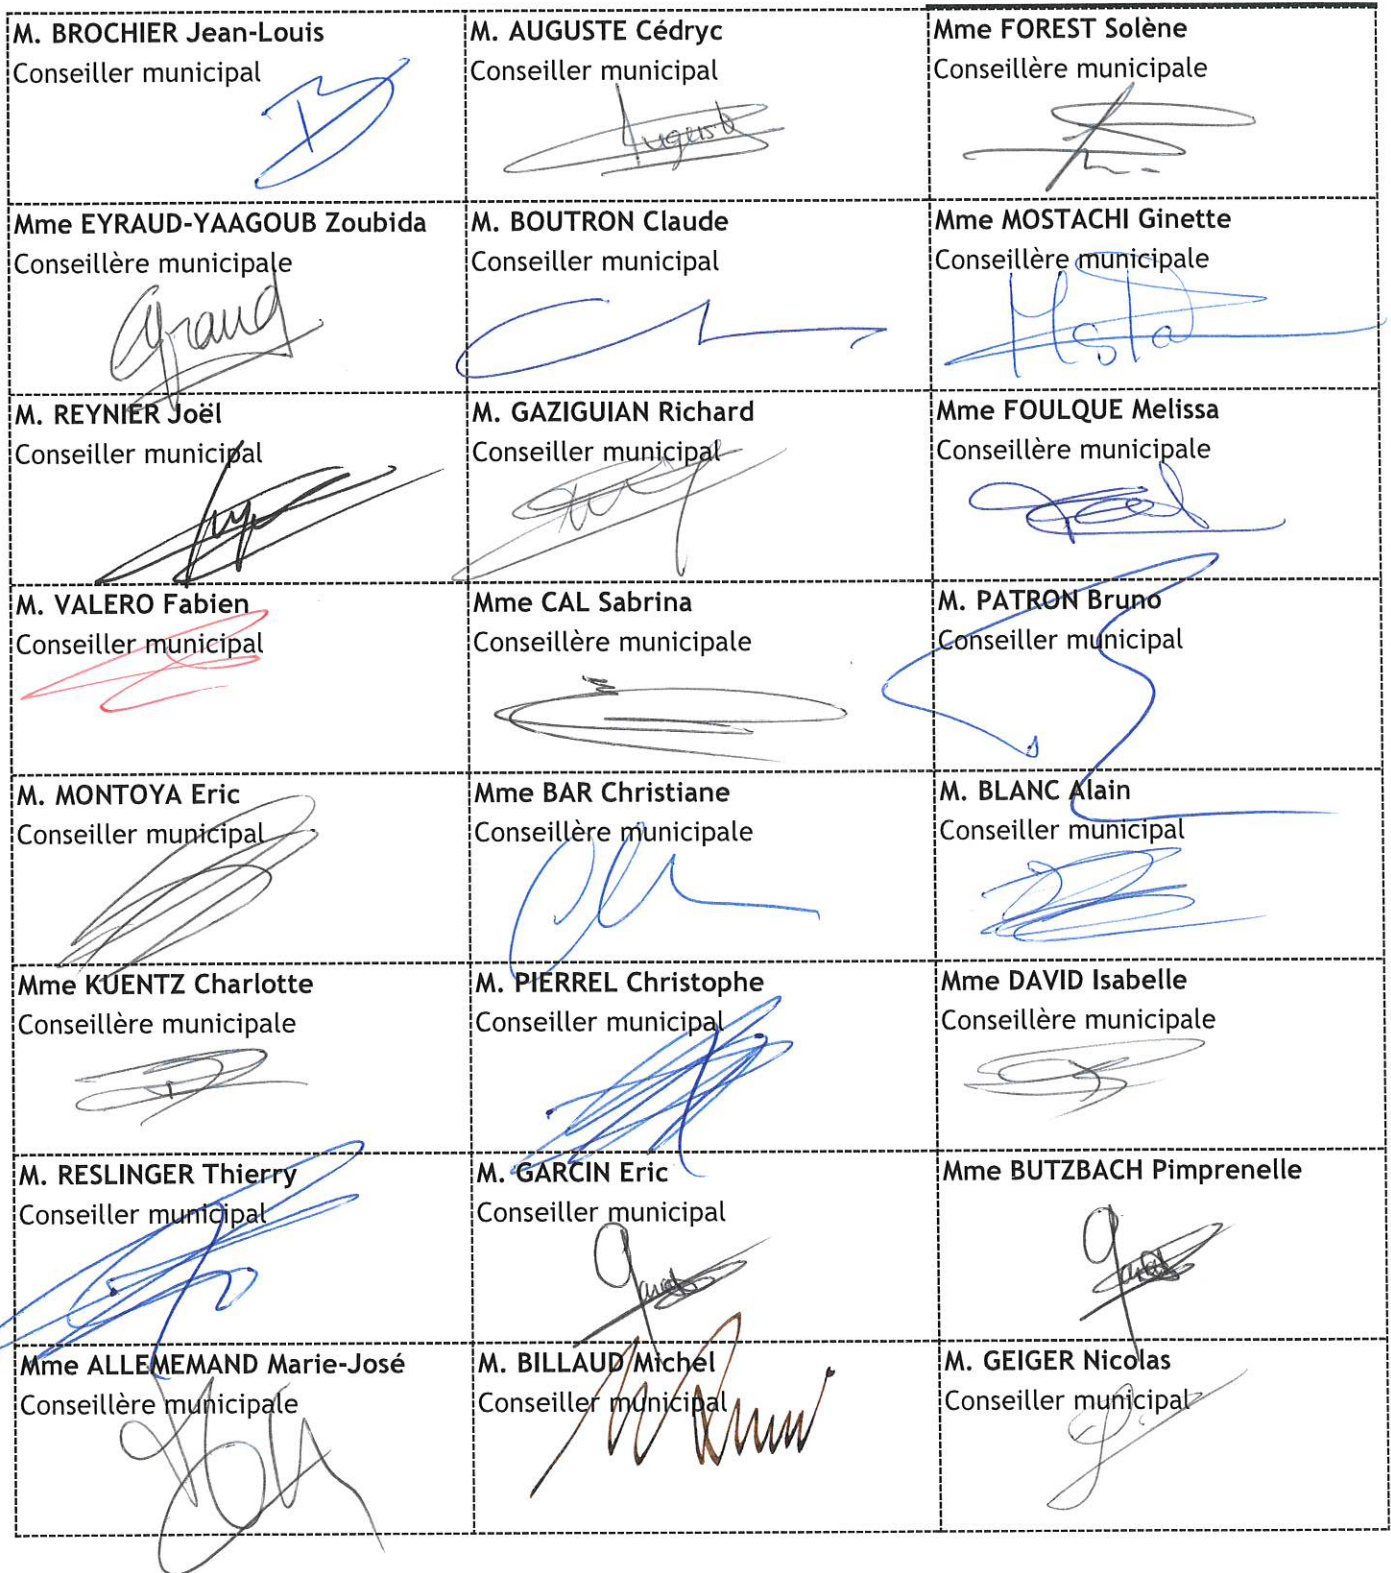 M. BROCHIER Jean-Louis
Conseiller municipal
M. AUGUSTE Cédryc
Conseiller municipal
Auguste
Mme FOREST Solène
Conseillère municipale
Mme EYRAUD-YAAGOUB Zoubida
Conseillère municipale
M. BOUTRON Claude
Conseiller municipal
Mme MOSTACHI Ginette
Conseillère municipale
M. REYNIER Joël
Conseiller municipal
M. GAZIGUIAN Richard
Conseiller municipal
Mme FOULQUE Melissa
Conseillère municipale
M. VALERO Fabien
Conseiller municipal
Mme CAL Sabrina
Conseillère municipale
M. PATRON Bruno
Conseiller municipal
M. MONTOYA Eric
Conseiller municipal
Mme BAR Christiane
Conseillère municipale
M. BLANC Alain
Conseiller municipal
Mme KUENTZ Charlotte
Conseillère municipale
M. PIERREL Christophe
Conseiller municipal
Mme DAVID Isabelle
Conseillère municipale
M. RESLINGER Thierry
Conseiller municipal
M. GARCIN Eric
Conseiller municipal
Mme BUTZBACH Pimprenelle
Mme ALLEMEMAND Marie-José
Conseillère municipale
M. BILLAUD Michel
Conseiller municipal
M. GEIGER Nicolas
Conseiller municipal